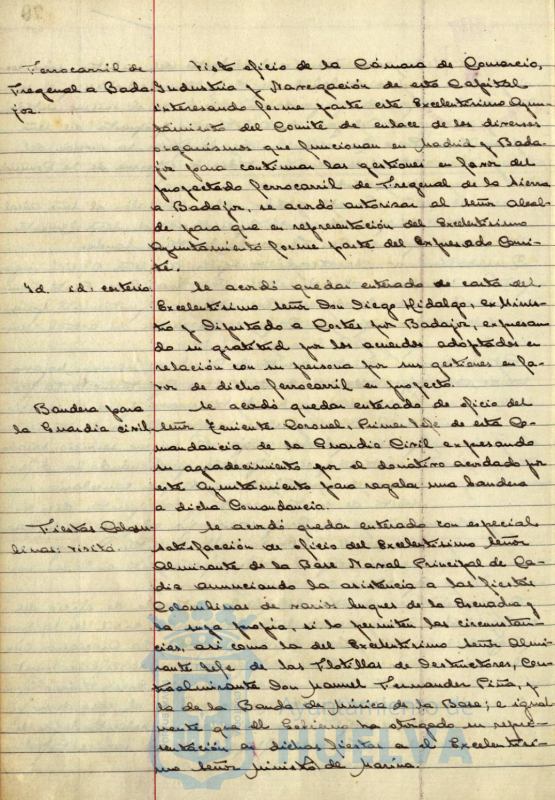 Ferrocarril de
Fregenal a Bada-
joz.
Visto oficio de la Cámara de Comercio,
Industria y Navegación de esta Capital
interesando forme parte este Excelentísimo Ayun-
tamiento del Comité de enlace de los diversos
organismos que funcionan en Madrid y Bada-
joz para continuar las gestiones en favor del
proyectado ferrocarril de Fregenal de la Sierra
a Badajoz, se acordó autorizar al señor Alcal-
de para que en representación del Excelentísimo
Ayuntamiento forme parte del expresado Comi-
té.
Id. id: 
Se acordó quedar enterado de carta del
Excelentísimo señor Don Diego Hidalgo, ex Minis-
tro y Diputado a Cortes por Badajoz, expresan-
do su gratitud por los acuerdos adoptados en
relación con su persona por sus gestiones en fa-
vor de dicho ferrocarril en proyecto.
Bandera para
la Guardia civil
Se acordó quedar enterado de oficio del
señor Teniente Coronel, Primer Jefe de esta Co-
mandancia de la Guardia Civil expresando
su agradecimiento por el donativo acordado por
este Ayuntamiento para regalar una bandera
a dicha Comandancia.
Fiestas Colom-
binas: visita.
Se acordó quedar enterado con especial
satisfacción de oficio del Excelentísimo señor
Almirante de la Base Naval Principal de Cá-
diz anunciando la asistencia a las fiestas
Colombinas de varios buques de la Escuadra y
la suya propia, si lo permiten las circunstan-
cias, así como la del Excelentísimo señor Almi-
rante Jefe de las Flotillas de Destructores, Con-
tralmirante Don Manuel Fernandez Piña, y
la de la Banda de Música de la Base; e igual-
mente que el Gobierno ha otorgado su repre-
sentación en dichas fiestas a el Excelentísi-
mo señor Ministro de Marina.
HUELVA